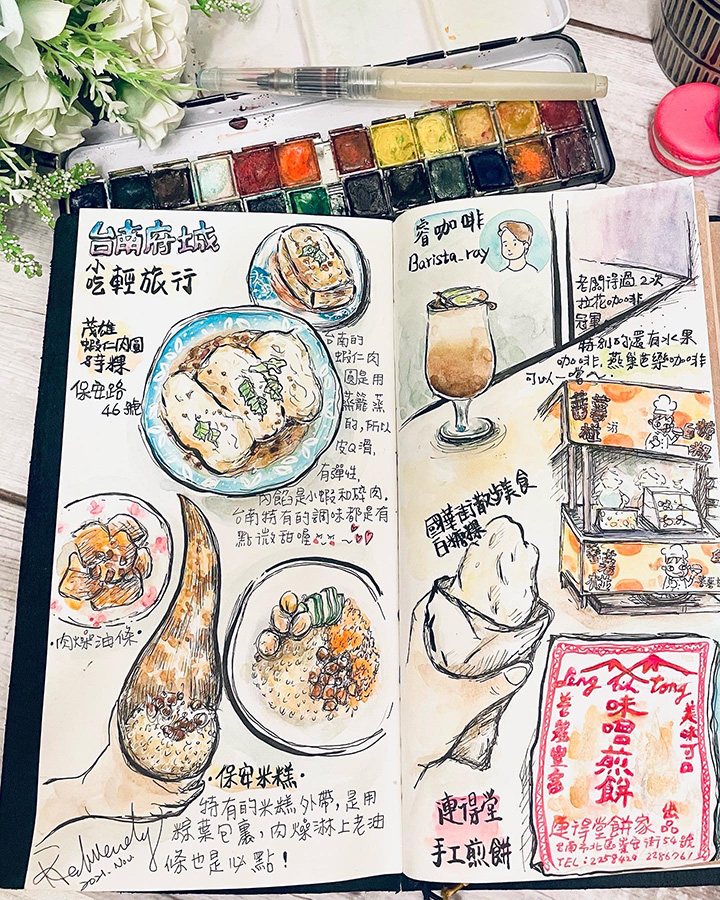 台南府城
小吃輕旅行
茂雄
蝦仁肉圓
時粿
保安路
46號
台南的
蝦仁肉
圓是用
蒸籠蒸
的,所以
皮Q滑,
有彈性,
內餡是小蝦和碎肉.
台南特有的調味都是有
點微甜喔~
·肉燥油條·
·保安米糕·
特有的米糕外帶,是用
粽葉包裹,肉燥淋上老油
條也是必點!
Redwendy
2021. Nov
睿咖啡
Barista_ray
老闆得過2次
拉花咖啡
冠軍
特別的還有水果
咖啡,燕巢芭樂咖啡
可以一嚐~
國華街散步美食
白糖粿
連得堂
手工煎餅
deng tu tong
味噌煎餅
美味可口
營養豐富
連得堂餅家
出品
台南市北區崇安街54號
TEL:2258429 2286761